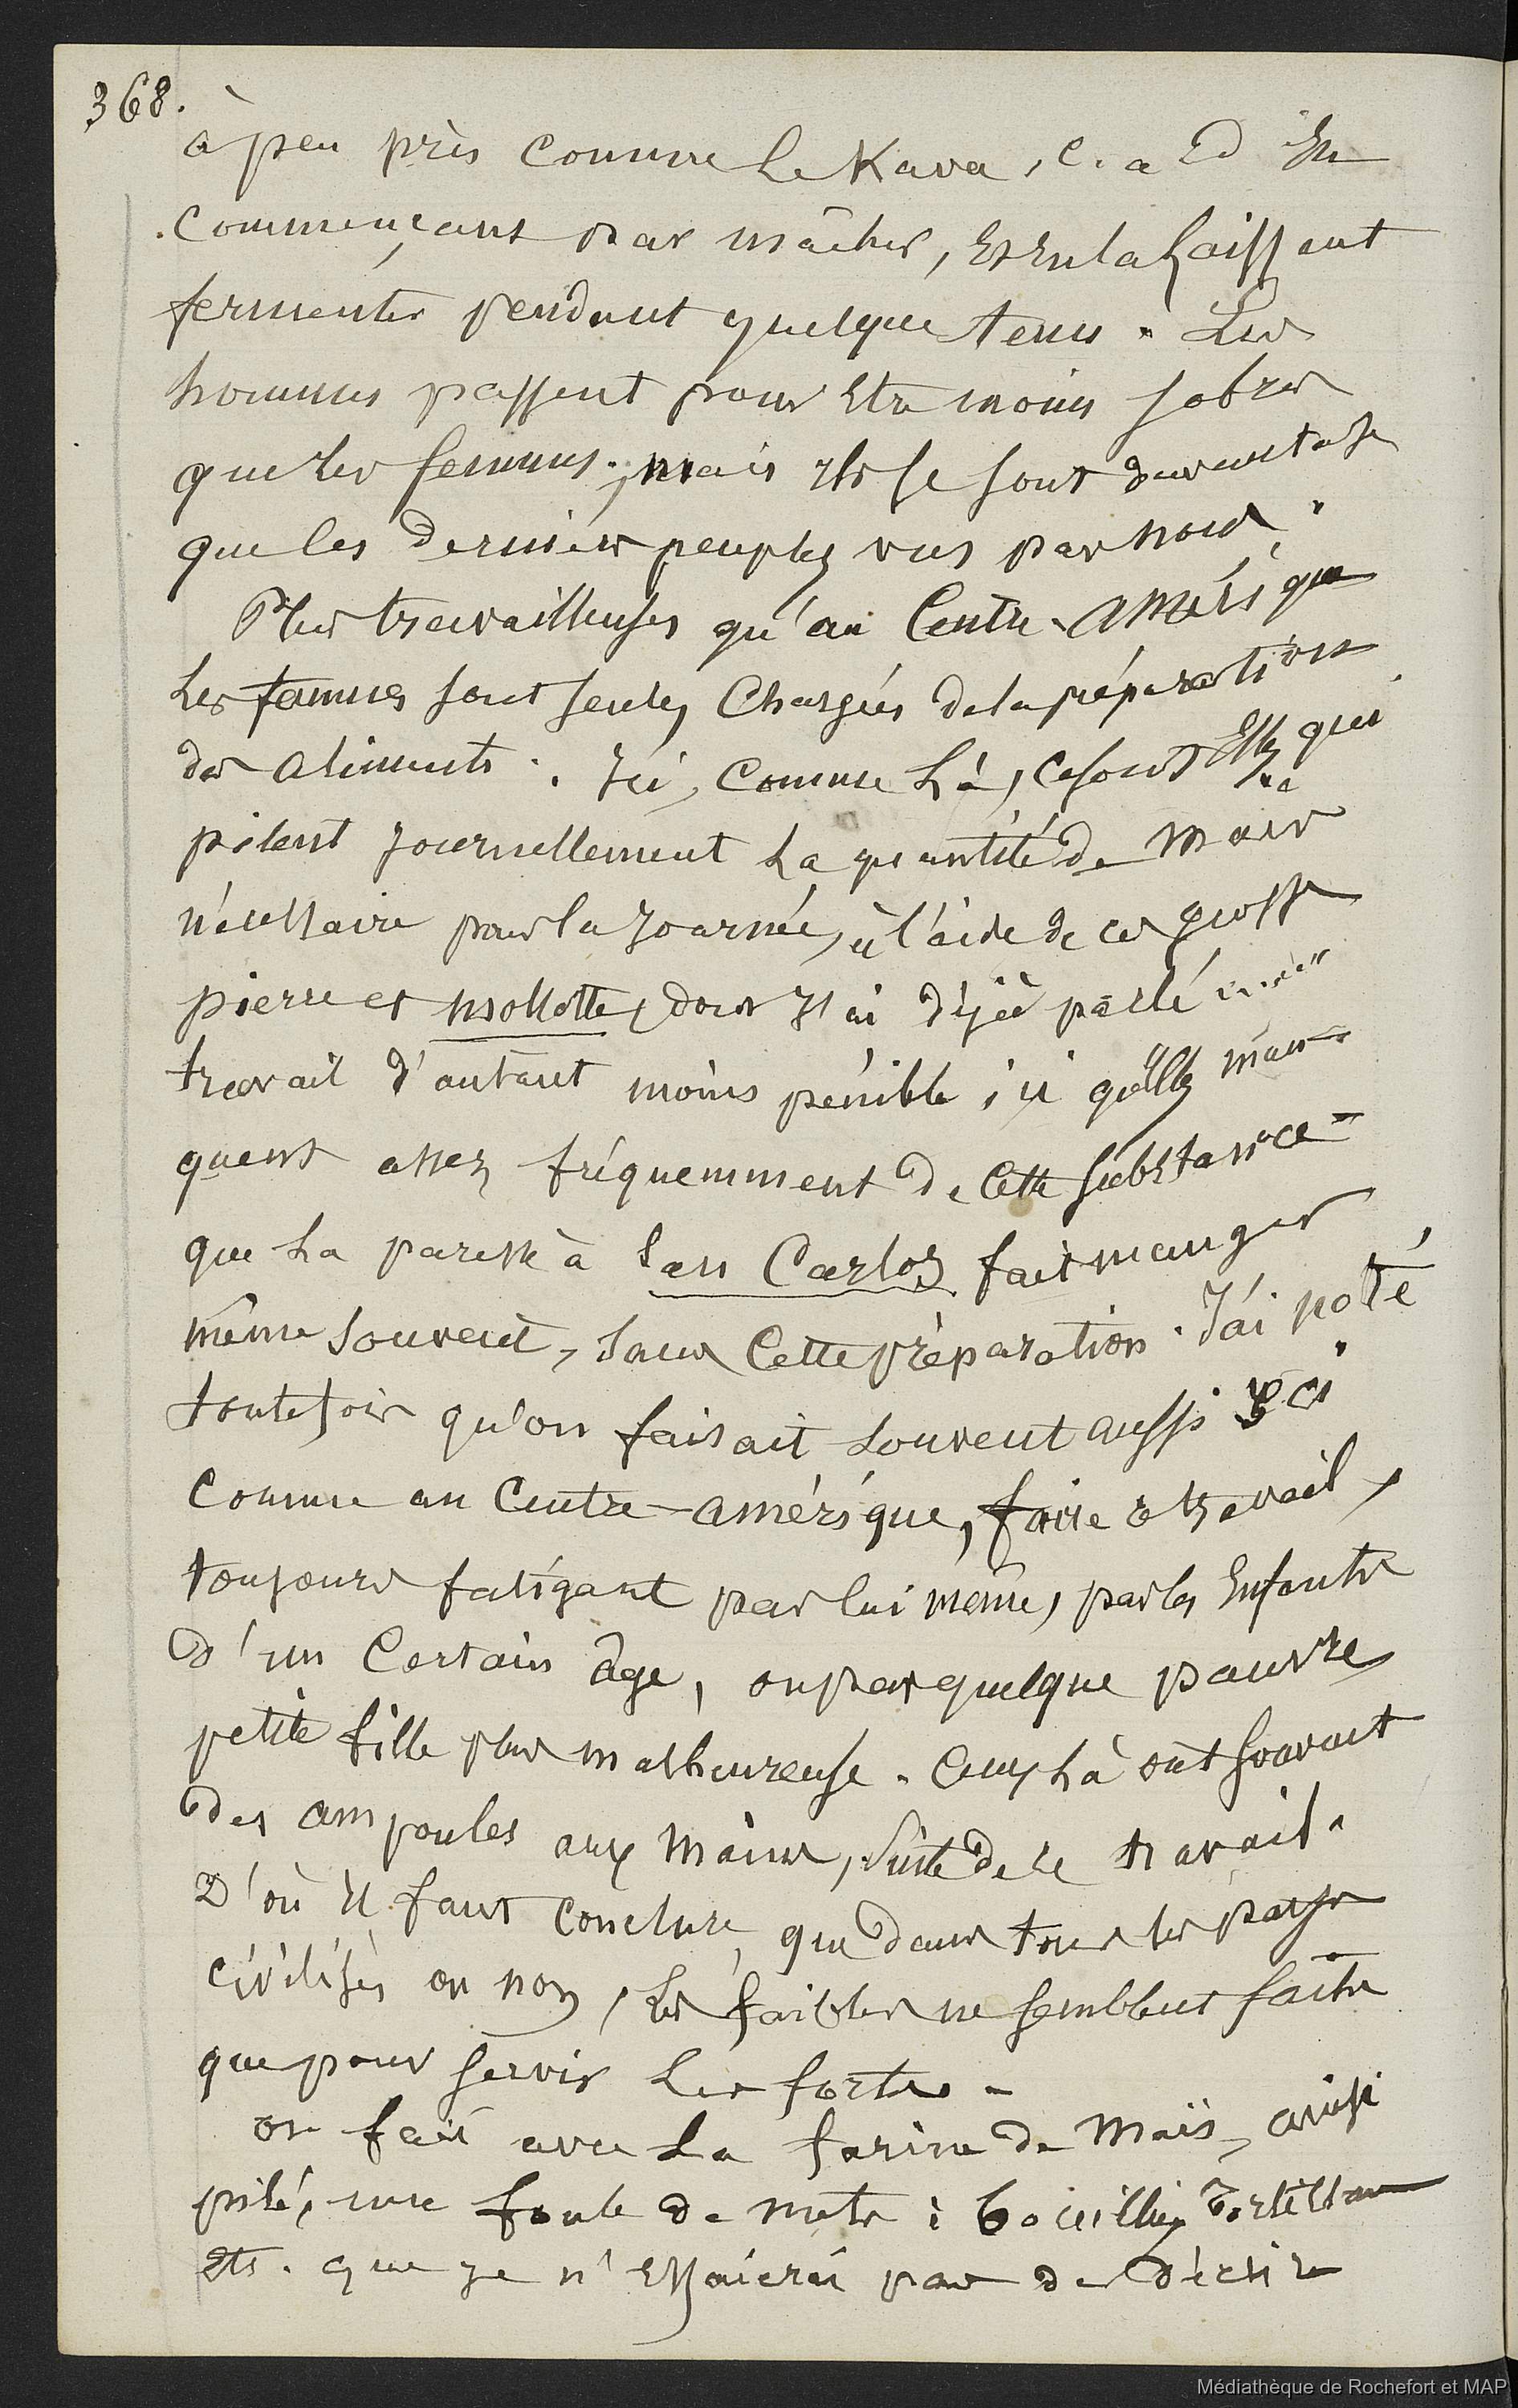 368.
à peu près comme le Kava, c. a d En
commençant par mâcher, Et En la laissant
fermenter pendant quelque tems. Les
hommes passent pour Etre moins sobres
que les femmes; mais ils le sont davantage
que les derniers peuples vus par nous.
Plus travailleuses qu'au Centre-Amérique
Les femmes sont seules Chargées de la préparation
des aliments. Ici, comme là, ce sont Elles qui
pilent journellement la quantité de maïs
nécessaire pour la journée, à l'aide de ces grosses
pierre et mollotte, dont J'ai déjà parlé
travail d'autant moins pénible ici qu'elles man-
quent assez fréquemment de cette substance
que la paresse à San Carlos fait manger
même souvent, sans cette préparation. J'ai noté
toutefois qu'on faisait souvent aussi ici
comme au Centre-amérique, faire ce travail,
toujours fatigant par lui même, par les Enfants
d'un Certain âge, ou par quelque pauvre
petite fille plus malheureuse. Ceux là ont souvent
des ampoules aux mains, suite de ce travail.
D'où il faut conclure, que dans tous les pays
civilisés ou non, les faibles ne semblent faits
que pour servir les forts.
on fait avec la farine de Maïs, ainsi
pilé, une foule de mets: bouillies tortillas
etc. que je n'Essaierai pas de décrire
Médiathèque de Rochefort et MAP